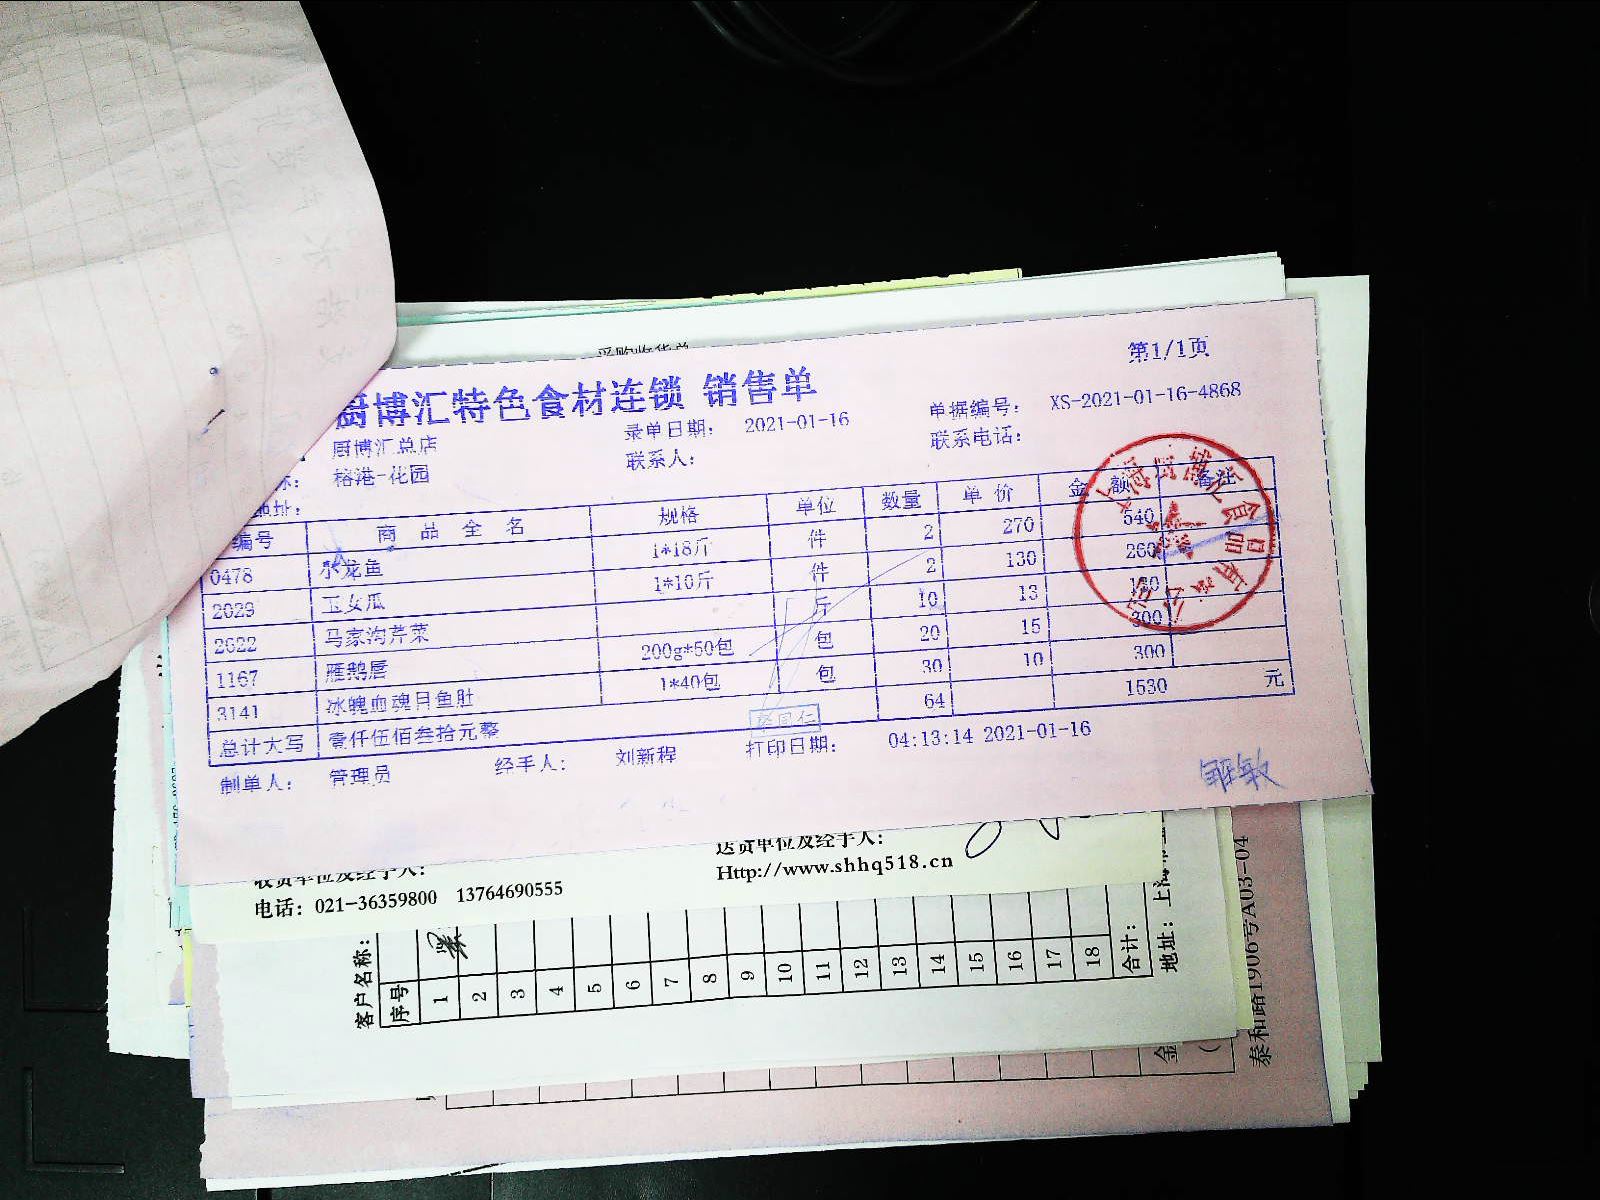 采购收货单
第1/1页
厨博汇特色食材连锁 销售单
厨博汇总店 录单日期： 2021-01-16 单据编号： XS-2021-01-16-4868
榕港-花园 联系人： 联系电话：
地址：
编号 商品全名 规格 单位 数量 单价 金额 备注
0478 小龙鱼 1*18斤 件 2 270 540
2029 玉女瓜 1*10斤 件 2 130 260
2622 马家沟芹菜 斤 10 13 130
1167 雁鹅唇 200g*50包 包 20 15 300
3141 冰魄血魂目鱼肚 1*40包 包 30 10 300
总计大写 壹仟伍佰叁拾元整 64 1530 元
制单人： 管理员 经手人： 刘新程 打印日期： 04:13:14 2021-01-16
收货单位及经手人： 送货单位及经手人：
Http://www.shhq518.cn
电话：021-36359800 13764690555
客户名称：
序号 1 2 3 4 5 6 7 8 9 10 11 12 13 14 15 16 17 18 合计：
地址：上海
泰和路1906号A03-04
金